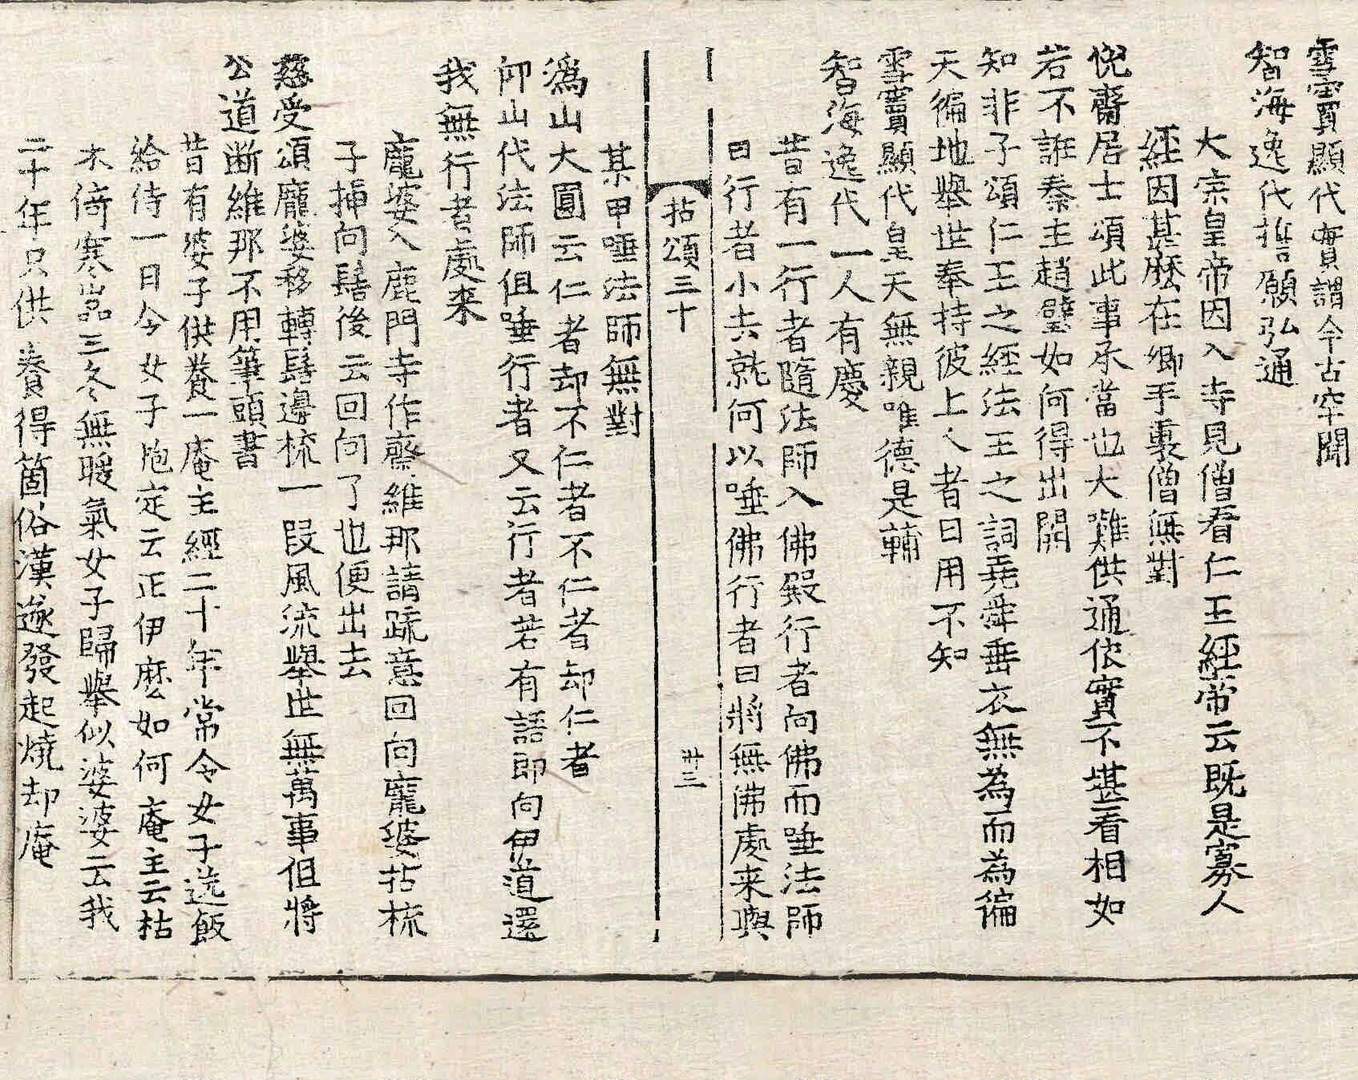 雪竇顯代實謂今古罕聞
智海逸代誓願弘通
大宗皇帝因入寺見僧看仁王經帝云既是寡人
經因甚麽在卿手裏僧無對
倪齋居士頌此事承當也大難供通依實不堪看相如
若不誑秦主趙璧如何得出關
知非子頌仁王之經法王之詞堯舜垂衣無為而為徧
天徧地舉世奉持彼上人者日用不知
雪竇顯代皇天無親唯德是輔
智海逸代一人有慶
昔有一行者隨法師入佛殿行者向佛而唾法師
曰行者小去就何以唾佛行者曰將無佛處来與
拈頌三十
卅三
某甲唾法師無對
潙山大圓云仁者却不仁者不仁者却仁者
仰山代法師但唾行者又云行者若有語即向伊道還
我無行者處来
龐婆入鹿門寺作齋維那請疏意回向龐婆拈梳
子揷向髻後云回向了也便出去
慈受頌龐婆移轉髻邊梳一段風流舉世無萬事但將
公道断維那不用筆頭書
昔有婆子供養一庵主經二十年常令女子送飯
給侍一日令女子抱定云正伊麽如何庵主云枯
木倚寒嵓三冬無暖氣女子歸舉似婆婆云我
二十年只供養得箇俗漢遂發起燒却庵